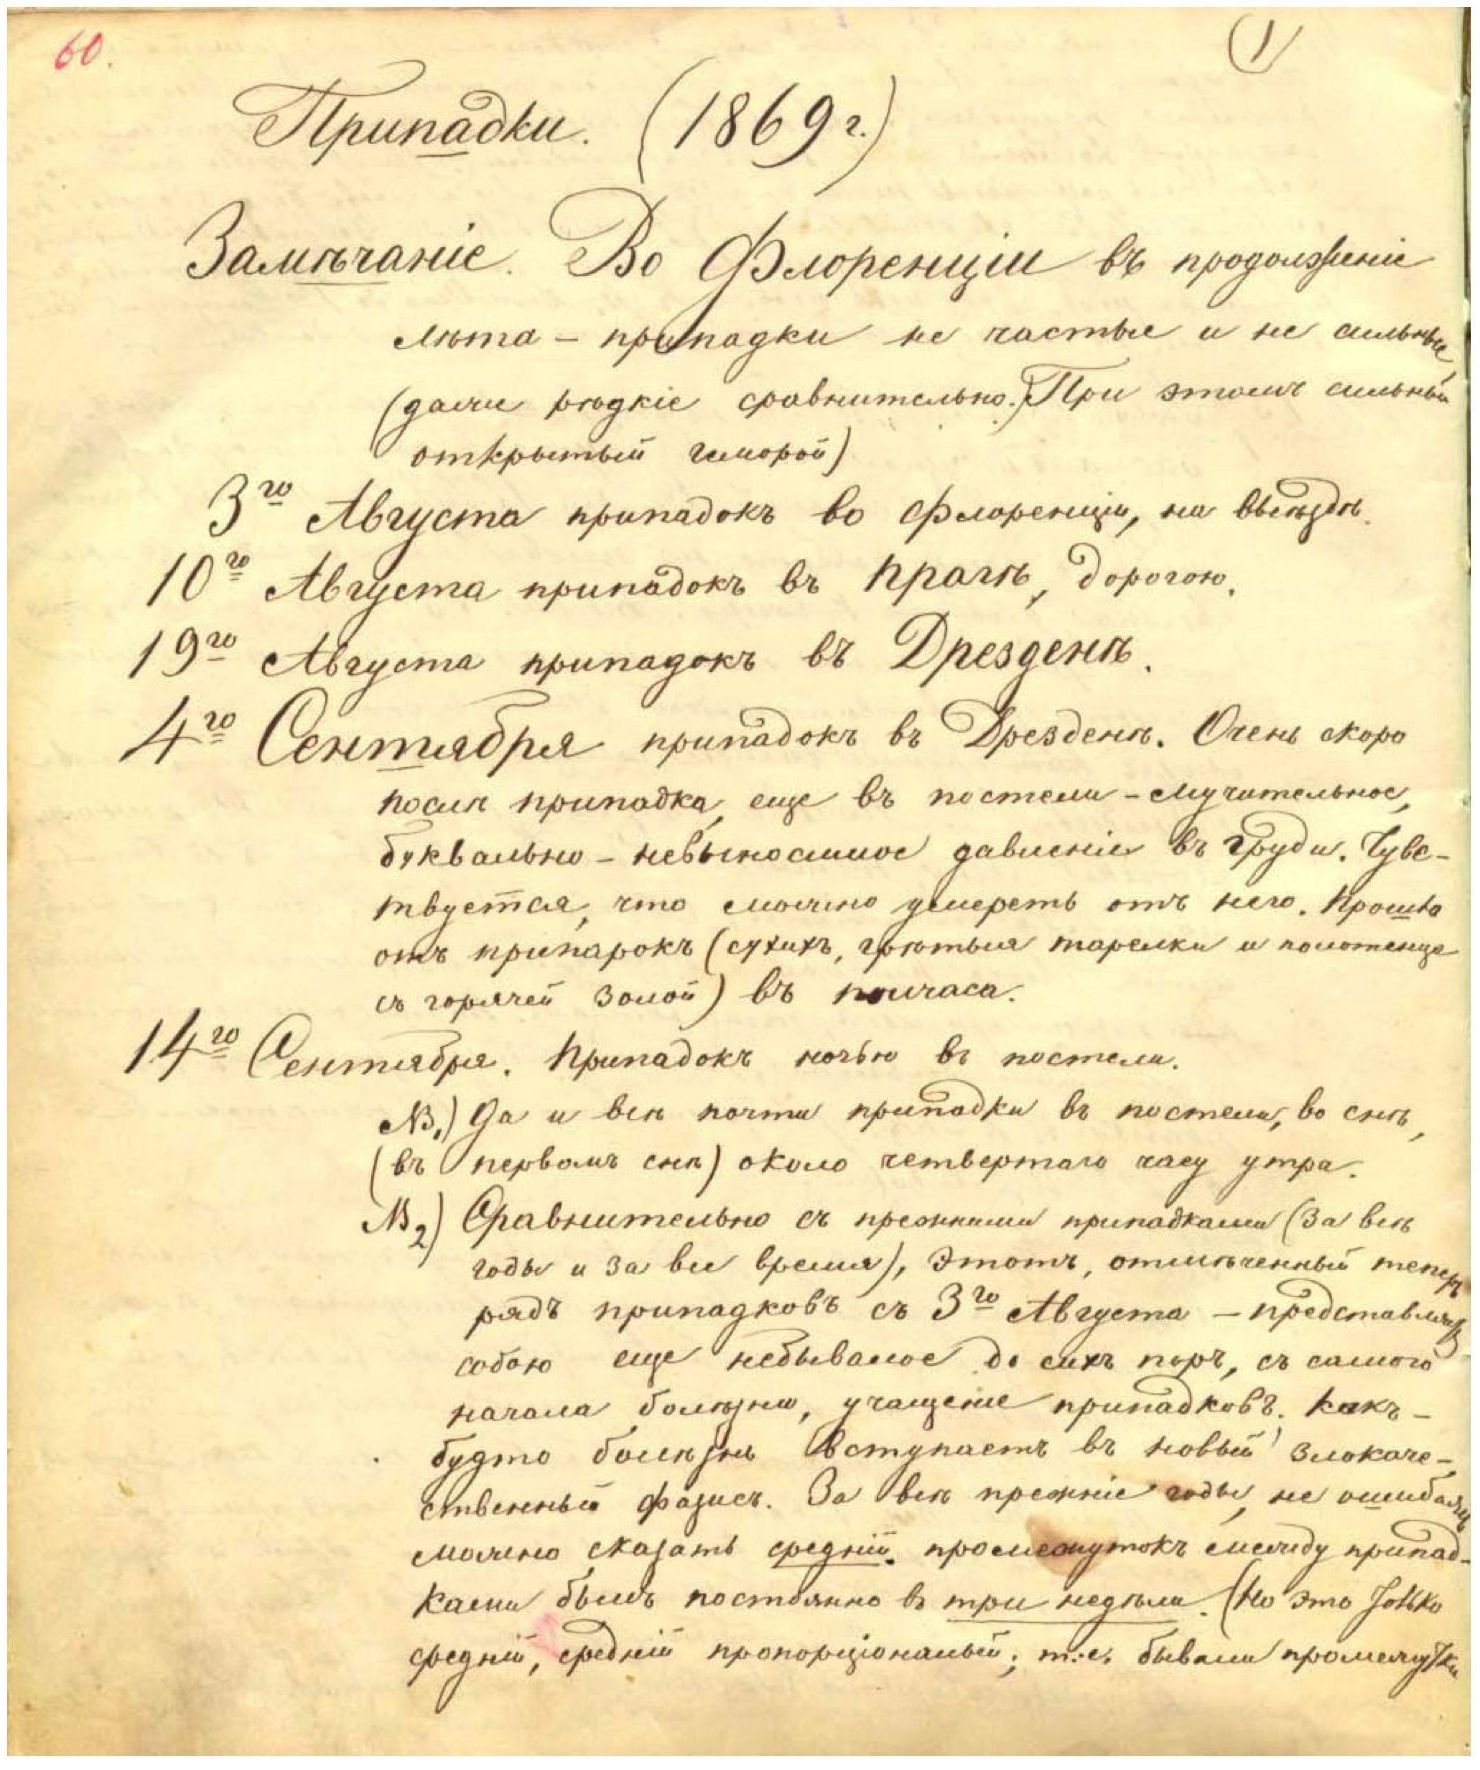 60.
1
Припадки. (1869 г.)
Замѣчаніе. Во Флоренціи въ продолженіе
лѣта – припадки не частые и не сильные,
(даже рѣдкіе сравнительно. При этомъ сильный
открытый геморой)
3го Августа припадокъ во Флоренціи, на выѣздѣ.
10го Августа припадокъ въ Прагѣ, дорогою.
19го Августа припадокъ въ Дрезденѣ.
4го Сентября припадокъ въ Дрезденѣ. Очень скоро
послѣ припадка, еще въ постели – мучительное,
буквально – невыносимое давленіе въ груди. Чувс-
твуется, что можно умереть отъ него. Прошло
отъ припарокъ (сухихъ, грѣтыя тарелки и полотенца
съ горячей золой) въ полчаса.
14го Сентября. Припадокъ ночью въ постели.
NB1) Да и всѣ почти припадки въ постели, во снѣ,
(въ первомъ снѣ) около четвертаго часу утра.
NB2) Сравнительно съ прежними припадками (за всѣ
годы и за все время), этотъ, отмѣченный теперь
рядъ припадковъ съ 3го Августа – представляетъ
собою еще небывалое до сихъ поръ, съ самого
начала болѣзни, учащеніе припадковъ. Какъ-
будто болѣзнь вступаетъ въ новый злокаче-
ственный фазисъ. За всѣ прежніе годы, не ошибаясь,
можно сказать средній промежутокъ между припад-
ками былъ постоянно въ три недѣли. (Но это только
средній, средній пропорціональный; т. е. бывали промежутки